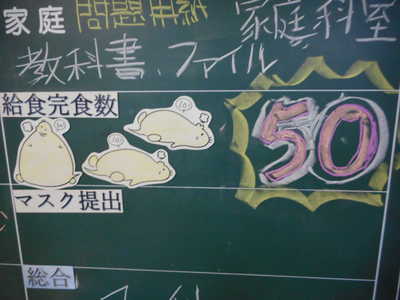 家庭 問題用紙 家庭科室
教科書、ファイル
給食完食数
50
マスク提出
総合